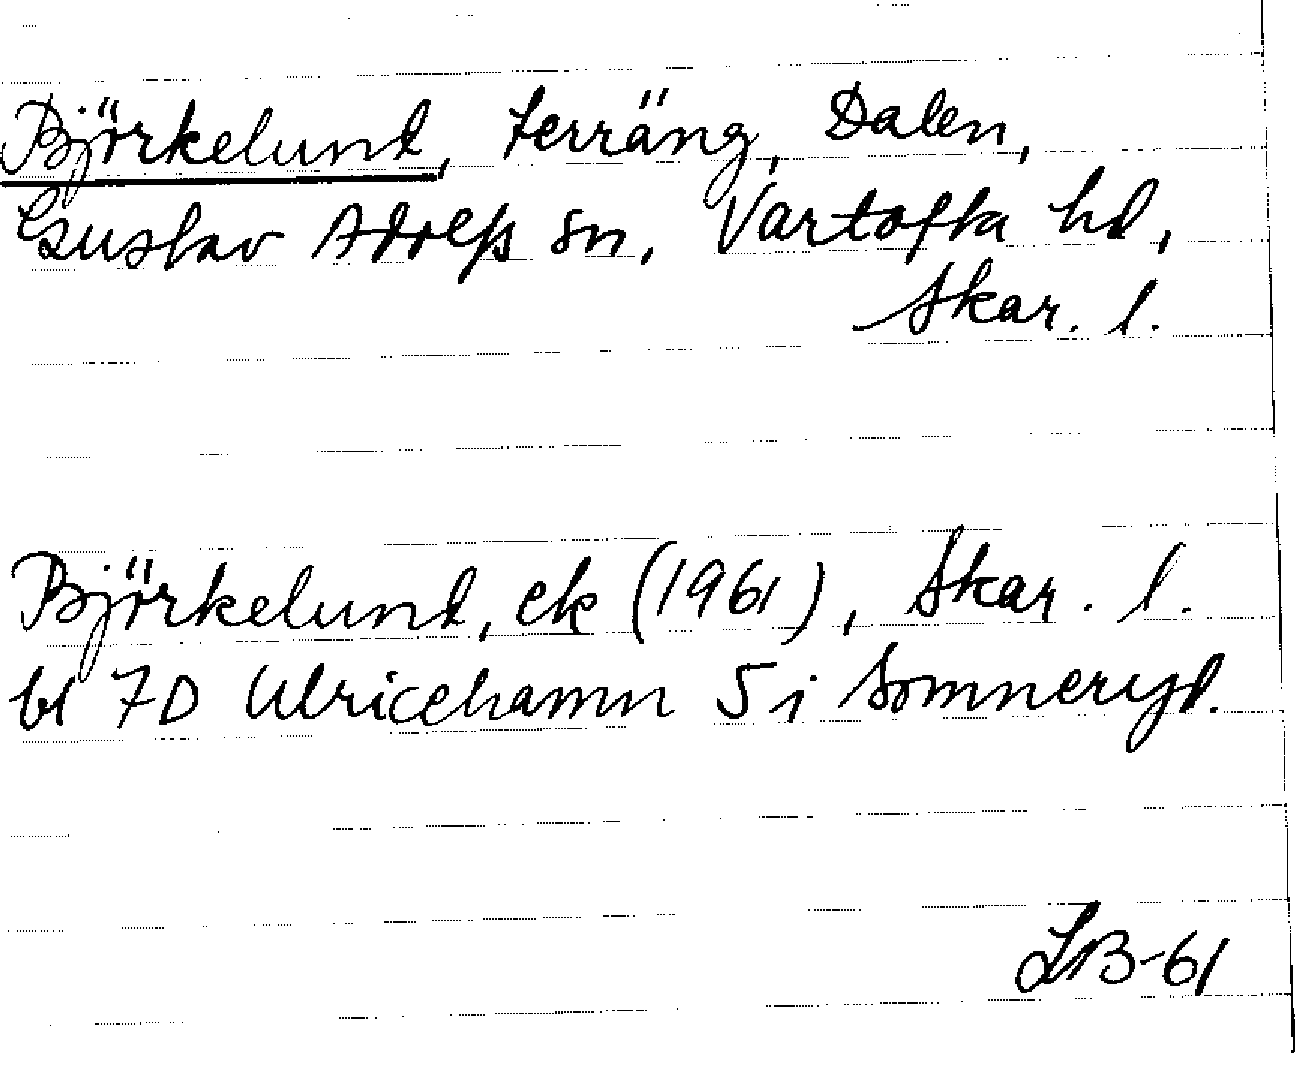 Björkelund, terräng, Dalen,
Gustav Adolfs sn, Vartofta hd,
Skar. l.
Björkelund, ek (1961), Skar. l.
bl 7D Ulricehamn 5 i Somneryd.
LB-61